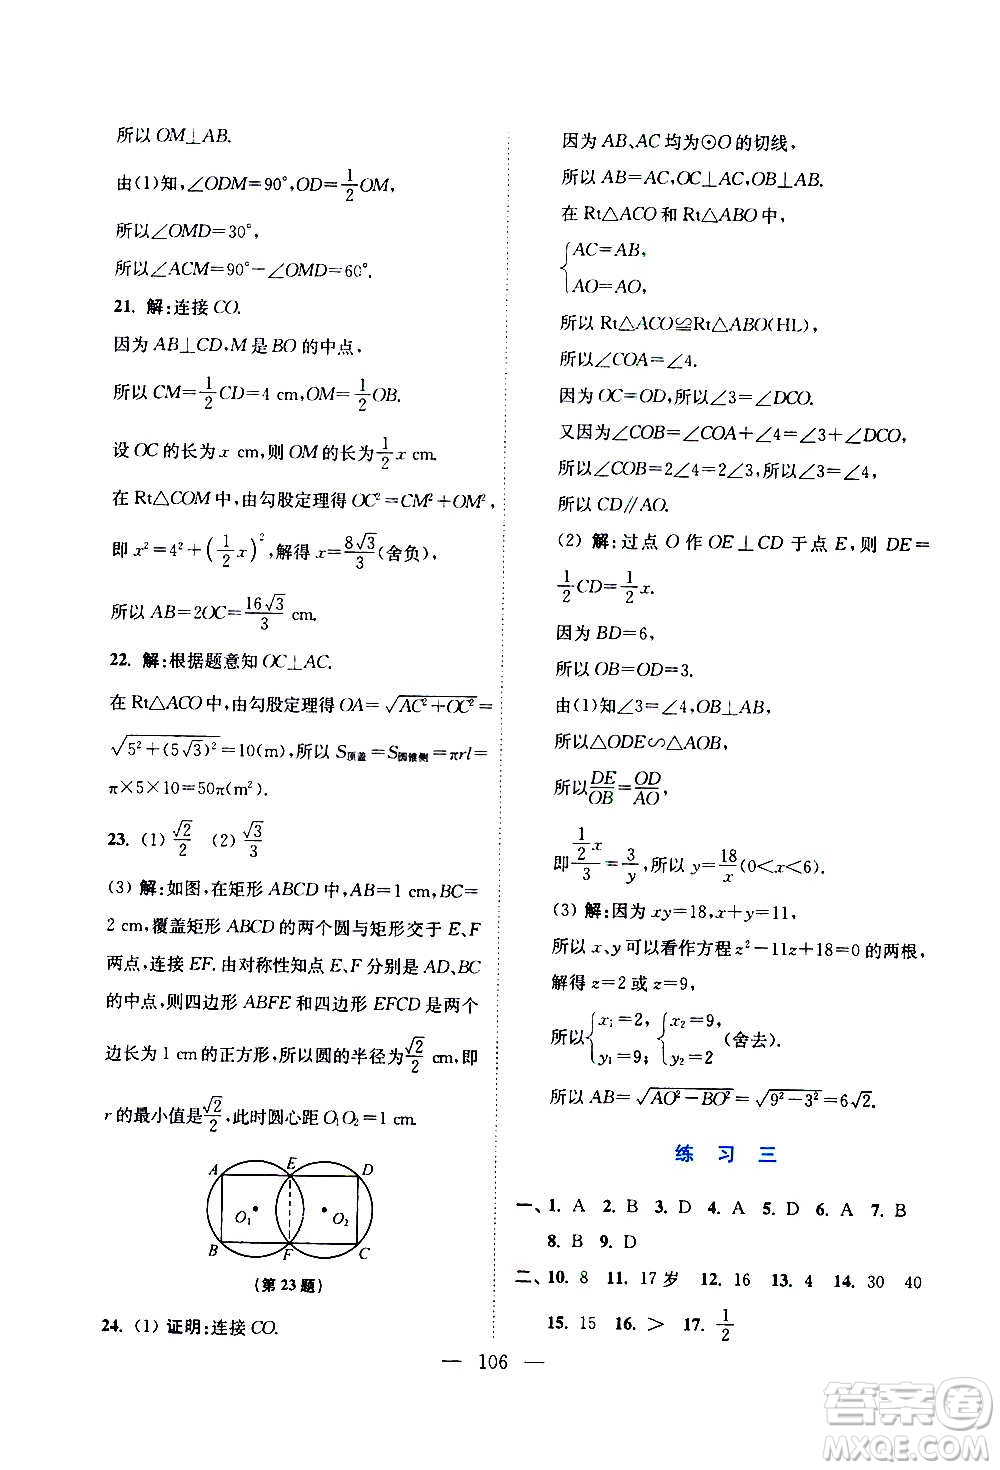 所以 OM⊥AB.
由(1)知,∠ODM=90°,OD=\frac{1}{2}OM,
所以∠OMD=30°,
所以∠ACM=90°-∠OMD=60°.
21. 解:连接 CO.
因为 AB⊥CD,M 是 BO 的中点,
所以 CM=\frac{1}{2}CD=4 cm,OM=\frac{1}{2}OB.
设 OC 的长为 x cm,则 OM 的长为\frac{1}{2}x cm.
在 Rt△COM 中,由勾股定理得 OC²=CM²+OM²,
即 x²=4²+(\frac{1}{2}x)²,解得 x=\frac{8\sqrt{3}}{3}(舍负),
所以 AB=2OC=\frac{16\sqrt{3}}{3} cm.
22. 解:根据题意知 OC⊥AC.
在 Rt△ACO 中,由勾股定理得 OA=\sqrt{AC²+OC²}=
\sqrt{5²+(5\sqrt{3})²}=10(m),所以 S顶盖=S圆锥侧=πrl=
π×5×10=50π(m²).
23. (1) \frac{\sqrt{2}}{2} (2) \frac{\sqrt{3}}{3}
(3) 解:如图,在矩形 ABCD 中,AB=1 cm,BC=
2 cm,覆盖矩形 ABCD 的两个圆与矩形交于 E、F
两点,连接 EF. 由对称性知点 E、F 分别是 AD、BC
的中点,则四边形 ABFE 和四边形 EFCD 是两个
边长为 1 cm 的正方形,所以圆的半径为\frac{\sqrt{2}}{2} cm,即
r 的最小值是\frac{\sqrt{2}}{2},此时圆心距 O₁O₂=1 cm.
A E D
O₁ O₂
B F C
(第 23 题)
24. (1) 证明:连接 CO.
因为 AB、AC 均为⊙O 的切线,
所以 AB=AC,OC⊥AC,OB⊥AB.
在 Rt△ACO 和 Rt△ABO 中,
{AC=AB,
AO=AO,
所以 Rt△ACO≌Rt△ABO(HL),
所以∠COA=∠4.
因为 OC=OD,所以∠3=∠DCO.
又因为∠COB=∠COA+∠4=∠3+∠DCO,
所以∠COB=2∠4=2∠3,所以∠4=∠3,
所以 CD∥AO.
(2) 解:过点 O 作 OE⊥CD 于点 E,则 DE=
\frac{1}{2}CD=\frac{1}{2}x.
因为 BD=6,
所以 OB=OD=3.
由(1)知∠3=∠4,OB⊥AB,
所以△ODE∽△AOB,
所以\frac{DE}{OB}=\frac{OD}{AO},
即\frac{\frac{1}{2}x}{3}=\frac{3}{y},所以 y=\frac{18}{x}(0<x<6).
(3) 解:因为 xy=18,x+y=11,
所以 x、y 可以看作方程 z²-11z+18=0 的两根,
解得 z=2 或 z=9,
所以{x₁=2, {x₂=9,
y₁=9; y₂=2 (舍去).
所以 AB=\sqrt{AO²-BO²}=\sqrt{9²-3²}=6\sqrt{2}.
练 习 三
一、1. A 2. B 3. D 4. A 5. D 6. A 7. B
8. B 9. D
二、10. 8 11. 17 岁 12. 16 13. 4 14. 30 40
15. 15 16. > 17. \frac{1}{2}
— 106 —
答案卷
MXQE.COM